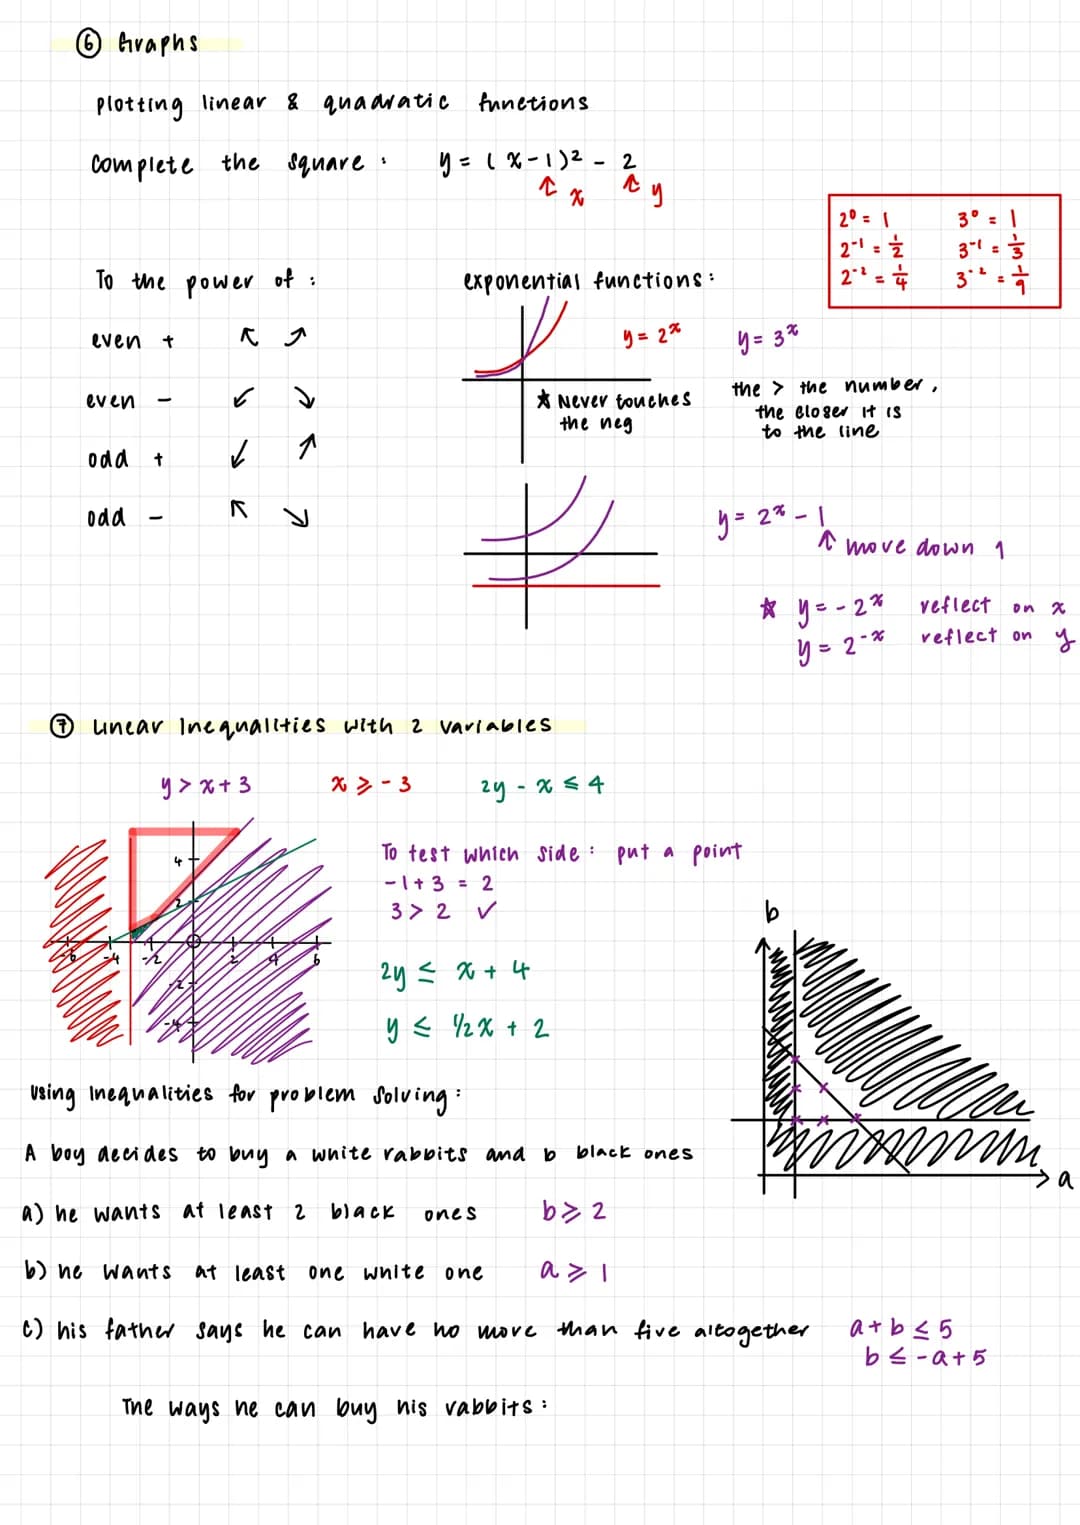 ⑥ Graphs
plotting linear & quadratic functions
Complete the square : y = (x-1)² - 2
↑ x ↑ y
2⁰ = 1 3⁰ = 1
2⁻¹ = 1/2 3⁻¹ = 1/3
2⁻² = 1/4 3⁻² = 1/9
To the power of :
even + ↖ ↗
even - ↙ ↘
odd + ↙ ↗
odd - ↖ ↘
exponential functions :
y = 2ˣ y = 3ˣ
★ Never touches
the neg
the > the number,
the closer it is
to the line
y = 2ˣ - 1
↑ move down 1
★ y = -2ˣ reflect on x
y = 2⁻ˣ reflect on y
⑦ Linear Inequalities with 2 variables
y > x + 3 x ⩾ -3 2y - x ⩽ 4
4
2
-6 -4 -2 2 4 6
-2
-4
To test which side : put a point
-1 + 3 = 2
3 > 2 ✓
2y ≤ x + 4
y ≤ 1/2x + 2
b
a
Using Inequalities for problem solving :
A boy decides to buy a white rabbits and b black ones
a) he wants at least 2 black ones b ⩾ 2
b) he wants at least one white one a ⩾ 1
c) his father says he can have no more than five altogether a + b ≤ 5
b ≤ -a + 5
The ways he can buy his rabbits :